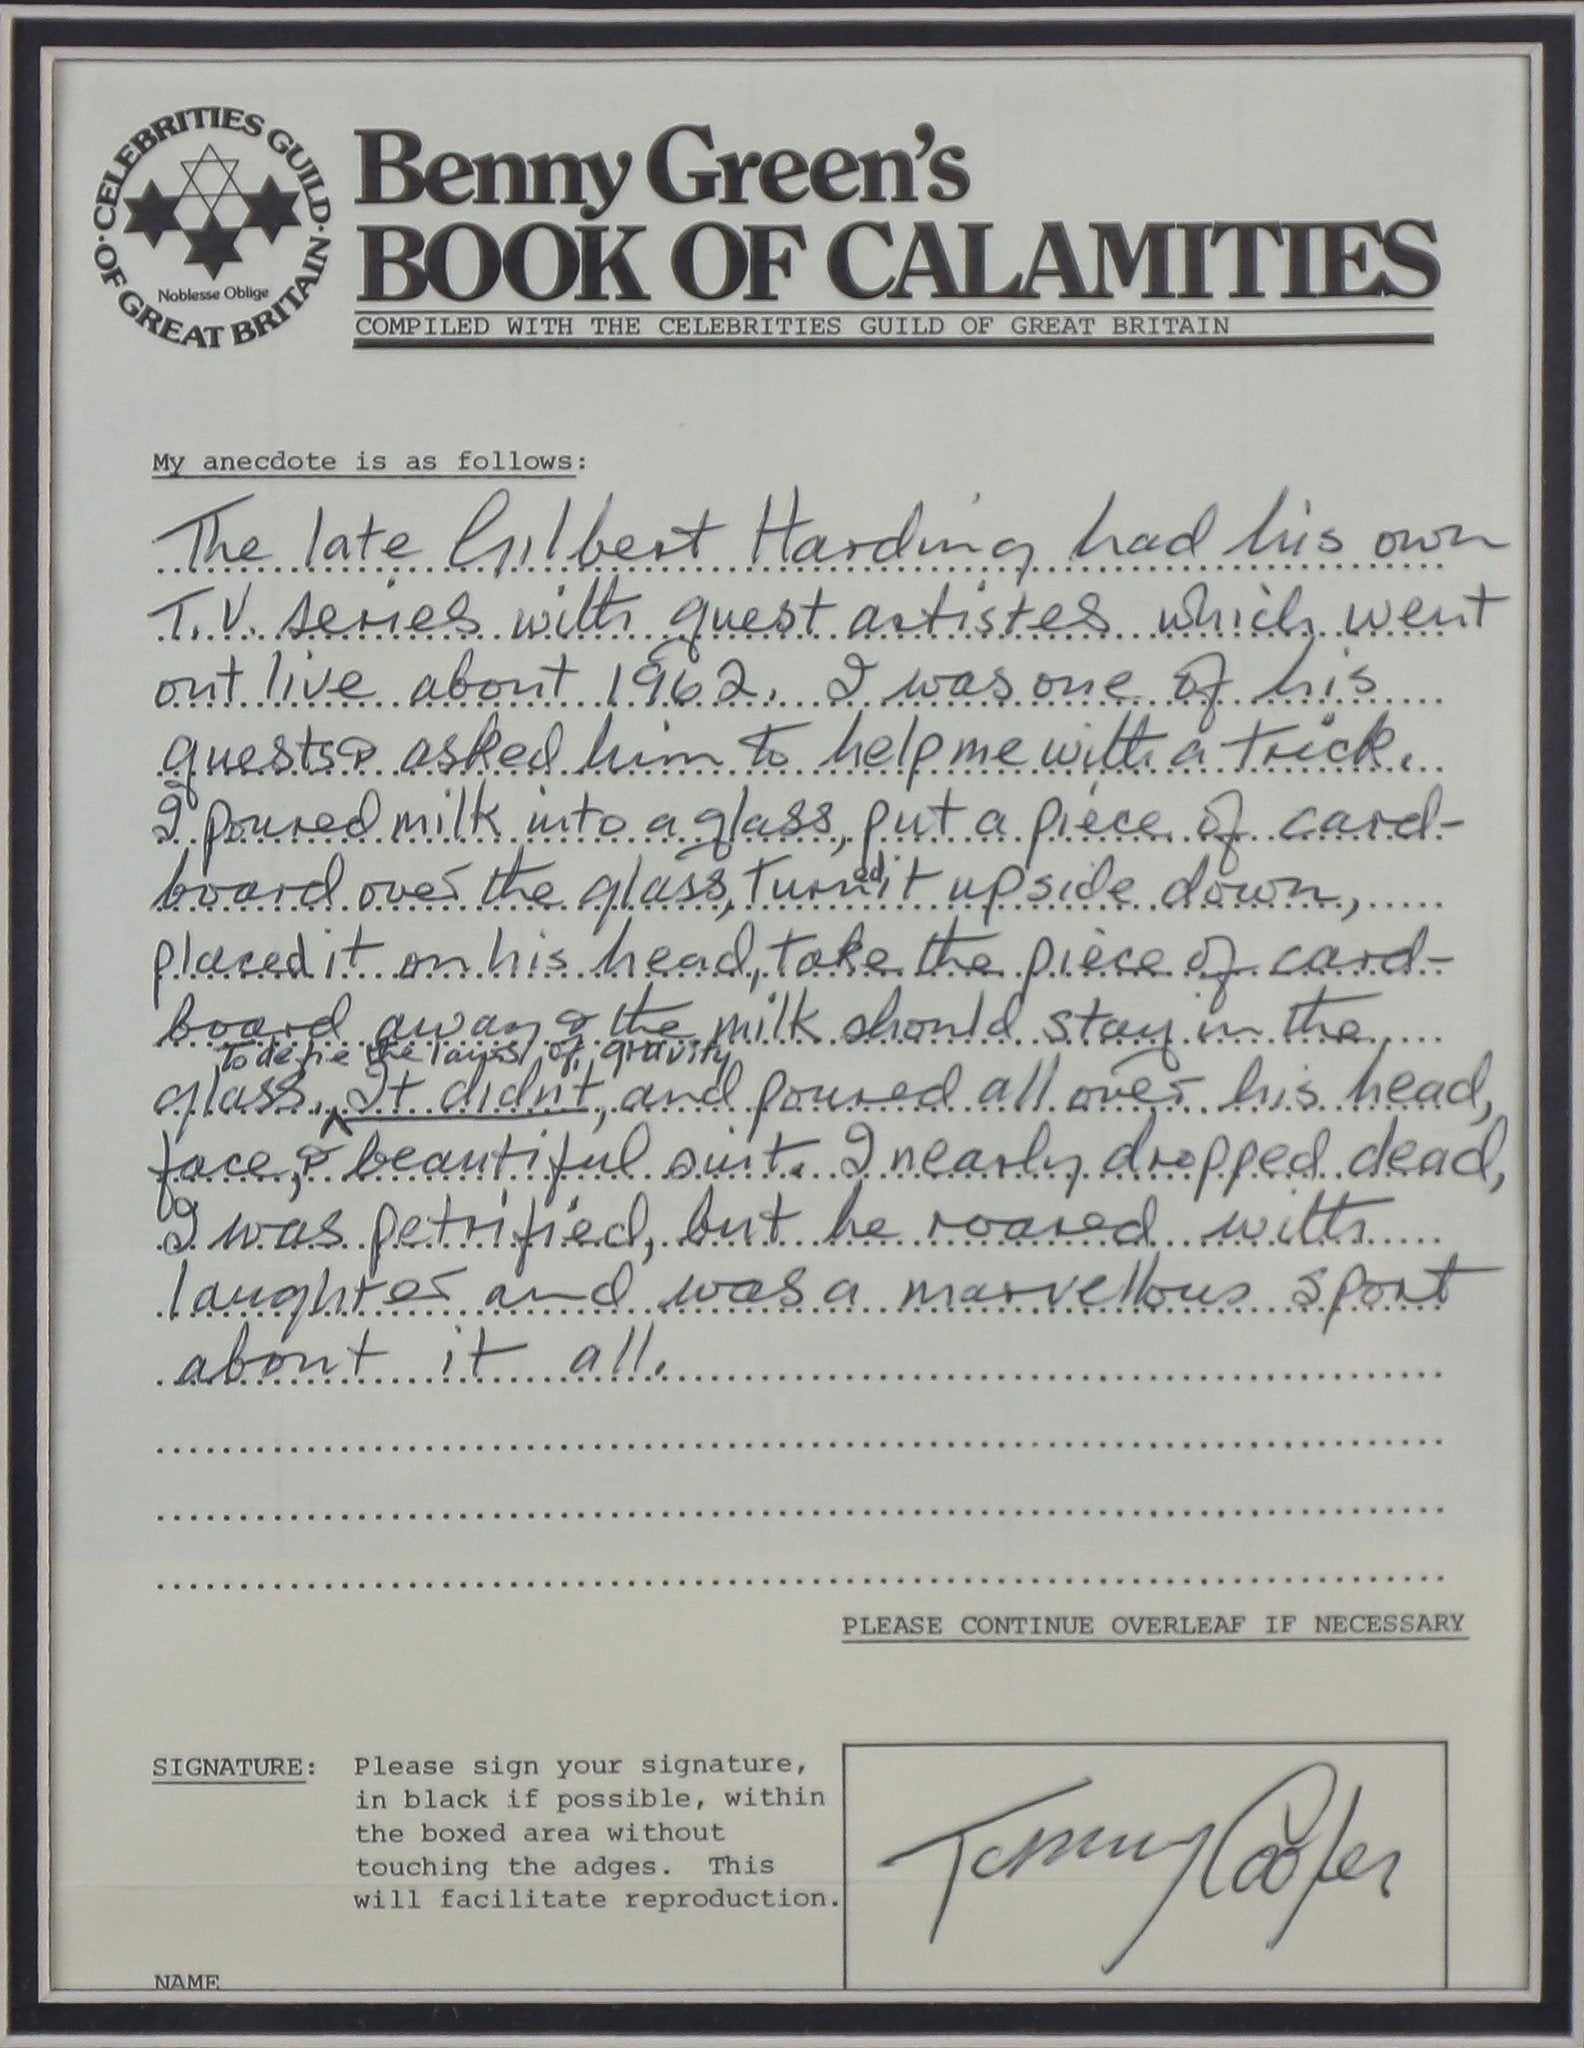 CELEBRITIES GUILD
OF GREAT BRITAIN
Noblesse Oblige
Benny Green's
BOOK OF CALAMITIES
COMPILED WITH THE CELEBRITIES GUILD OF GREAT BRITAIN
My anecdote is as follows:
The late Gilbert Harding had his own
T.V. series with guest artistes which went
out live about 1962. I was one of his
guests & asked him to help me with a trick.
I poured milk into a glass, put a piece of card-
board over the glass, turned it upside down,
placed it on his head, take the piece of card-
board away & the milk should stay in the
to defie the laws of gravity
glass. It didnt, and poured all over his head,
face, & beautiful suit. I nearly dropped dead,
I was petrified, but he roared with
laughter and was a marvellous sport
about it all.
PLEASE CONTINUE OVERLEAF IF NECESSARY
SIGNATURE: Please sign your signature,
in black if possible, within
the boxed area without
touching the adges. This
will facilitate reproduction.
Tommy Cooper
NAME